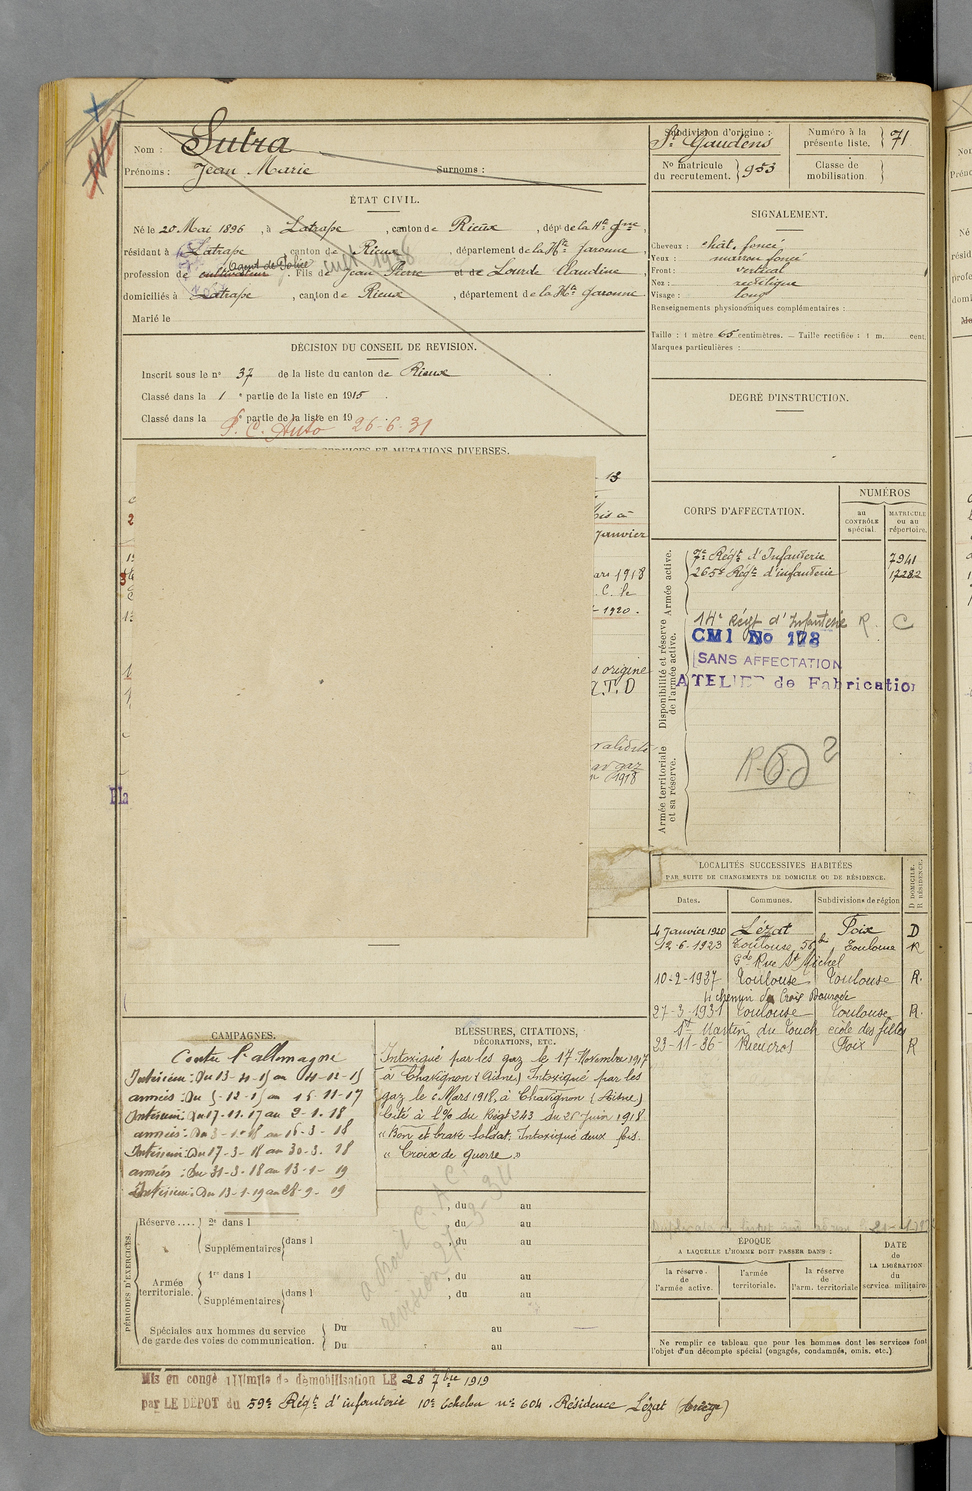 Nom : Sutra
Prénoms : Jean Marie Surnoms :
Subdivision d'origine : St Gaudens
Numéro à la présente liste. } 71
No matricule du recrutement. } 953
Classe de mobilisation }
ÉTAT CIVIL.
Né le 20 Mai 1896, à Latrape, canton de Rieux, dépt de la Hte Gnne,
résidant à Latrape, canton de Rieux, département de la Hte Garonne,
profession de cultivateur. Fils de Jean Pierre et de Lourde Claudine,
domiciliés à Latrape, canton de Rieux, département de la Hte Garonne.
Marié le
DÉCISION DU CONSEIL DE REVISION.
Inscrit sous le no 37 de la liste du canton de Rieux
Classé dans la 1 e partie de la liste en 1915.
Classé dans la e partie de la liste en 19
S. C. Auto 26-6-31
SERVICES ET MUTATIONS DIVERSES.
Janvier
1918
C. le
1920.
s origine
T. D
gaz
1918
SIGNALEMENT.
Cheveux : chât. foncé
Yeux : marron foncé
Front : vertical
Nez : rectiligne
Visage : long
Renseignements physionomiques complémentaires :
Taille : 1 mètre 65 centimètres. — Taille rectifiée : 1 m. cent.
Marques particulières :
DEGRÉ D'INSTRUCTION.
CORPS D'AFFECTATION.
NUMÉROS
au CONTRÔLE spécial.
MATRICULE ou au répertoire.
Armée active.
7e Régt d'Infanterie 7941
265e Régt d'infanterie 17282
Disponibilité et réserve de l'armée active.
14e Régt d'Infanterie R C
CMI No 178
SANS AFFECTATION
ATELIER de Fabrication
Armée territoriale et sa réserve.
LOCALITÉS SUCCESSIVES HABITÉES
PAR SUITE DE CHANGEMENTS DE DOMICILE OU DE RÉSIDENCE.
Dates. Communes. Subdivisions de région D DOMICILE. R RÉSIDENCE.
4 Janvier 1920 Lézat Foix D
12-6-1923 Toulouse, 56 bis Toulouse R
Gde Rue St Michel
10-2-1927 Toulouse Toulouse R.
chemin de Croix Daurade
27-3-1931 Toulouse Toulouse R.
St Martin du Touch école des filles
23-11-36 Rieucros Foix R
CAMPAGNES.
Contre l'allemagne
Intérieur : Du 13-4-15 au 4-12-15
armées : Du 5-12-15 au 16-11-17
Intérieur : Du 17-11-17 au 2-1-18
armées : Du 3-1-18 au 16-3-18
Intérieur : Du 17-3-18 au 30-3-18
armées : Du 31-3-18 au 13-1-19
Intérieur : Du 13-1-19 au 28-9-19
BLESSURES, CITATIONS,
DÉCORATIONS, ETC.
Intoxiqué par les gaz le 17 Novembre 1917
à Chavignon (Aisne) Intoxiqué par les
gaz le Mars 1918, à Chavignon (Aisne)
Cité à l'O/ du Régt 243 du 26 Juin 1918.
"Bon et brave Soldat. Intoxiqué deux fois.
" Croix de guerre "
PÉRIODES D'EXERCICES.
Réserve .... { 2e dans l , du au
, du au
Supplémentaires { dans l , du au
Armée territoriale. { 1re dans l , du au
Supplémentaires { dans l , du au
Spéciales aux hommes du service de garde des voies de communication. { Du au
Du au
a droit C. A C.
révision 27-3-34
ÉPOQUE
A LAQUELLE L'HOMME DOIT PASSER DANS :
la réserve de l'armée active.
l'armée territoriale.
la réserve de l'arm. territoriale
DATE de LA LIBÉRATION du service militaire.
Ne remplir ce tableau que pour les hommes dont les services font
l'objet d'un décompte spécial (engagés, condamnés, omis, etc.)
Mis en congé illimité de démobilisation LE 28 7bre 1919
par LE DÉPOT du 59e Régt d'infanterie 10e Echelon no 604. Résidence Lézat (Ariège)